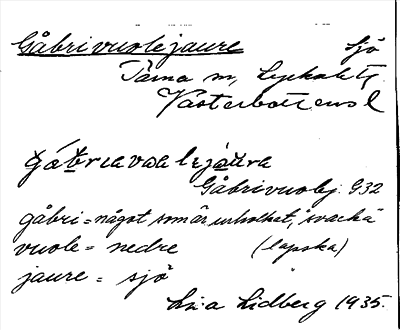 Gåbrivuolejaure Sjö
Tärna sn, Lycksele tg.
Västerbottens l
gåbrιavuȧlejȧu̯ra
Gåbrivuolej. G32
gåbri = något som är urholkat,
vuole = nedre (lapska)
jaure = sjö
Lisa Lidberg 1935.